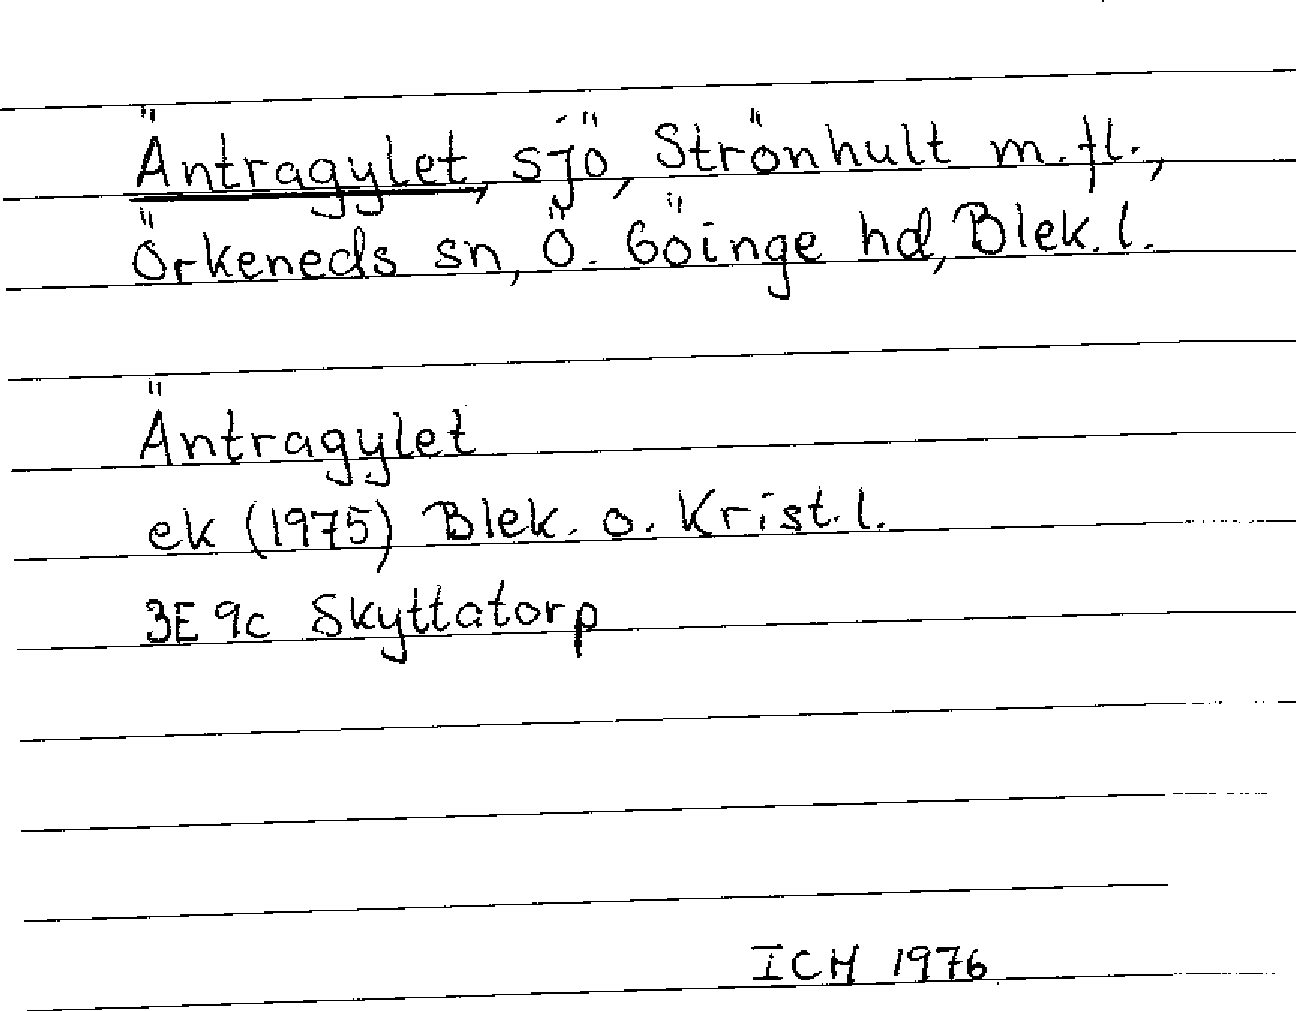 Äntragylet, sjö, Strönhult m.fl.,
Örkeneds sn, Ö. Göinge hd, Blek. l.
Äntragylet
ek (1975) Blek. o. Krist. l.
3E 9c Skyttatorp
ICH 1976